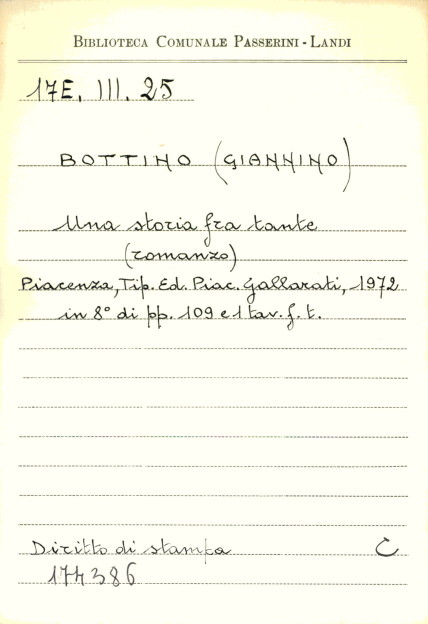 BIBLIOTECA COMUNALE PASSERINI-LANDI
17E. III. 25
BOTTINO (GIANNINO)
Una storia fra tante
(romanzo)
Piacenza, Tip. Ed. Piac. Gallarati, 1972
in 8° di pp. 109 e 1 tav. f. t.
Diritto di stampa C
174386